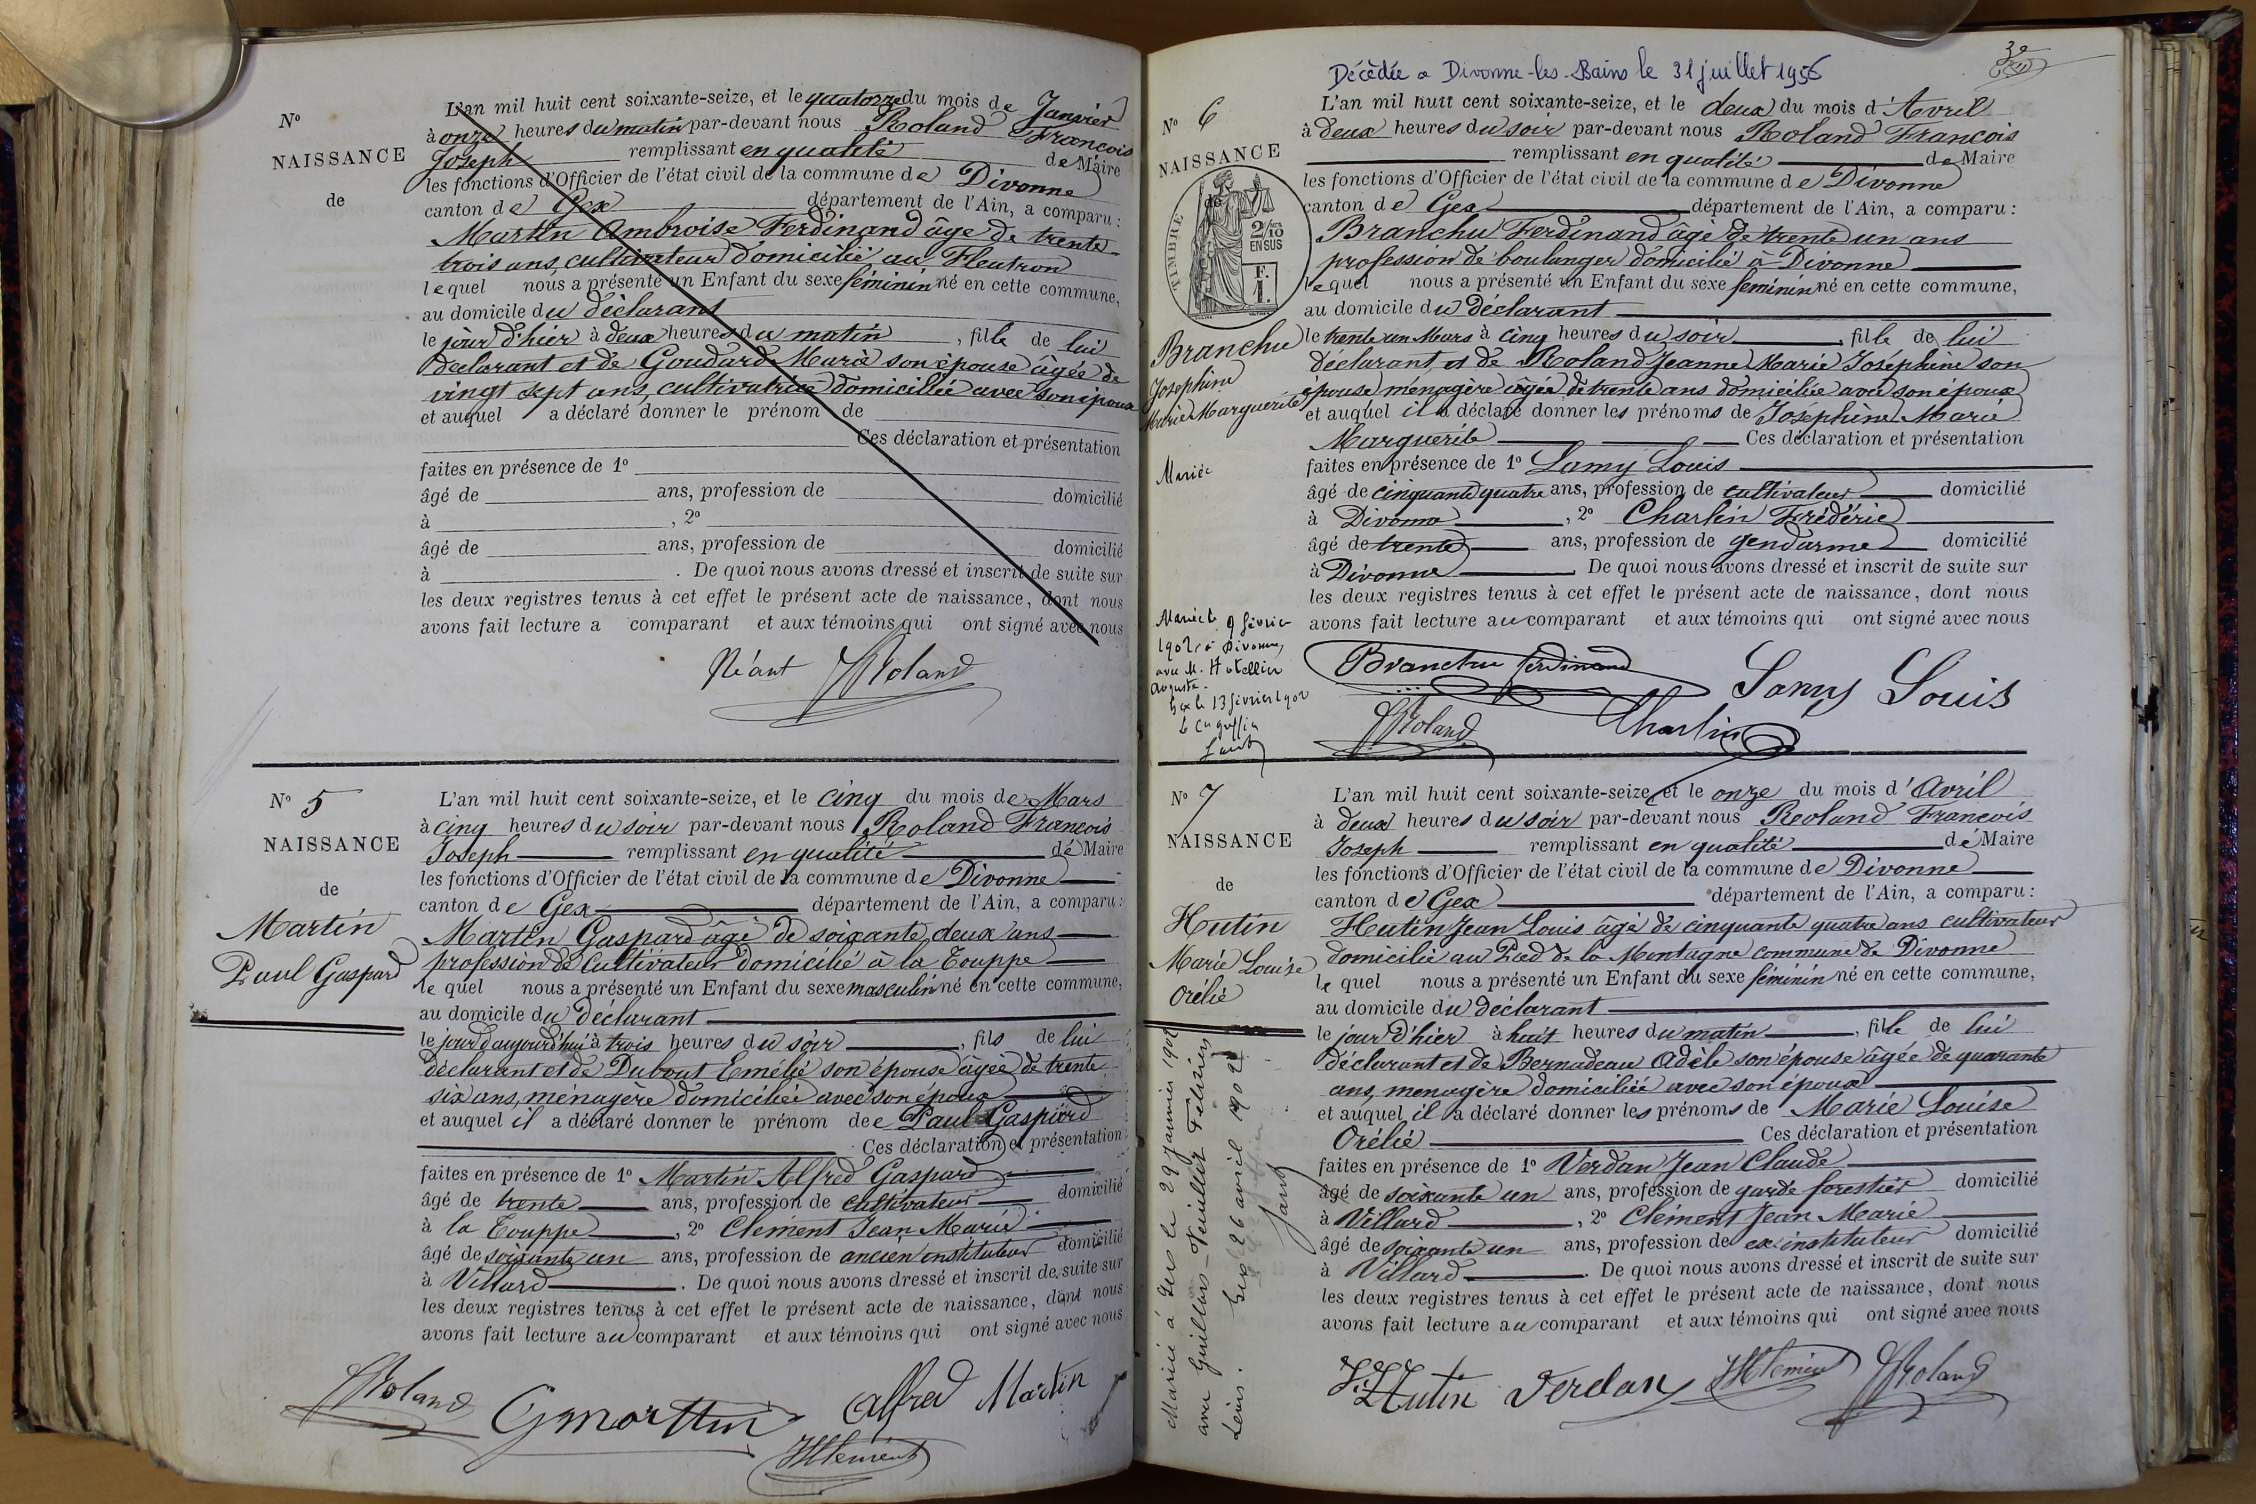 N°
NAISSANCE
de
L'an mil huit cent soixante-seize, et le quatorze du mois de Janvier
à onze heures du matin par-devant nous Roland François
Joseph remplissant en qualité de Maire
les fonctions d'Officier de l'état civil de la commune de Divonne
canton de Gex département de l'Ain, a comparu :
Martin Ambroise Ferdinand âgé de trente
trois ans, cultivateur domicilié au Fleutron
lequel nous a présenté un Enfant du sexe féminin né en cette commune,
au domicile du déclarant
le jour d'hier à deux heures du matin, fille de lui
déclarant et de Goudard Marie son épouse âgée de
vingt sept ans, cultivatrice domiciliée avec son époux
et auquel a déclaré donner le prénom de
Ces déclaration et présentation
faites en présence de 1°
âgé de ans, profession de domicilié
à , 2°
âgé de ans, profession de domicilié
à . De quoi nous avons dressé et inscrit de suite sur
les deux registres tenus à cet effet le présent acte de naissance, dont nous
avons fait lecture a comparant et aux témoins qui ont signé avec nous
Néant JRoland
N° 5
NAISSANCE
de
Martin
Paul Gaspard
L'an mil huit cent soixante-seize, et le cinq du mois de Mars
à cinq heures du soir par-devant nous Roland François
Joseph remplissant en qualité de Maire
les fonctions d'Officier de l'état civil de la commune de Divonne
canton de Gex département de l'Ain, a comparu :
Martin Gaspard âgé de soixante deux ans
profession de Cultivateur domicilié à la Touppe
le quel nous a présenté un Enfant du sexe masculin né en cette commune,
au domicile du déclarant
le jour d'aujourd'hui à trois heures du soir, fils de lui
déclarant et de Dubout Emélie son épouse âgée de trente
six ans, ménagère domiciliée avec son époux
et auquel il a déclaré donner le prénom de Paul Gaspard
Ces déclaration et présentation
faites en présence de 1° Martin Alfred Gaspard
âgé de trente ans, profession de cultivateur domicilié
à la Touppe, 2° Clément Jean Marie
âgé de soixante un ans, profession de ancien instituteur domicilié
à Villard. De quoi nous avons dressé et inscrit de suite sur
les deux registres tenus à cet effet le présent acte de naissance, dont nous
avons fait lecture au comparant et aux témoins qui ont signé avec nous
JRoland Gmarttin Alfred Martin
JMClément
Décédée à Divonne-les-Bains le 31 juillet 1956
N° 6
NAISSANCE
de
TIMBRE
2/10
EN SUS
F.
1.
Branchu
Joséphine
Marie Marguerite
Mariée
Mariée le 9 février
1902 à Divonne,
avec M. Hotellier
Auguste.
Gex le 13 février 1902
Le Cn greffier
L'an mil huit cent soixante-seize, et le deux du mois d'Avril
à deux heures du soir par-devant nous Roland François
remplissant en qualité de Maire
les fonctions d'Officier de l'état civil de la commune de Divonne
canton de Gex département de l'Ain, a comparu :
Branchu Ferdinand âgé de trente un ans
profession de boulanger domicilié à Divonne
lequel nous a présenté un Enfant du sexe féminin né en cette commune,
au domicile du déclarant
le trente un Mars à cinq heures du soir, fille de lui
déclarant et de Roland Jeanne Marie Joséphine son
épouse ménagère âgée de trente ans domiciliée avec son époux
et auquel il a déclaré donner les prénoms de Joséphine Marie
Marguerite Ces déclaration et présentation
faites en présence de 1° Lamy Louis
âgé de cinquante quatre ans, profession de cultivateur domicilié
à Divonne, 2° Charlin Frédéric
âgé de trente ans, profession de gendarme domicilié
à Divonne. De quoi nous avons dressé et inscrit de suite sur
les deux registres tenus à cet effet le présent acte de naissance, dont nous
avons fait lecture au comparant et aux témoins qui ont signé avec nous
Branchu ferdinand Lamy Louis
JRoland Charlin
N° 7
NAISSANCE
de
Hutin
Marie Louise
Orélie
Mariée à Gex le 29 janvier 1902
avec Guillos-Veuillet Félicien
Léon. Gex 26 avril 1902
L'an mil huit cent soixante-seize, et le onze du mois d'Avril
à deux heures du soir par-devant nous Roland François
Joseph remplissant en qualité de Maire
les fonctions d'Officier de l'état civil de la commune de Divonne
canton de Gex département de l'Ain, a comparu :
Hutin Jean Louis âgé de cinquante quatre ans cultivateur
domicilié au Pied de la Montagne commune de Divonne
le quel nous a présenté un Enfant du sexe féminin né en cette commune,
au domicile du déclarant
le jour d'hier à huit heures du matin, fille de lui
déclarant et de Bernadeau Adèle son épouse âgée de quarante
ans, menagère domiciliée avec son époux
et auquel il a déclaré donner les prénoms de Marie Louise
Orélie Ces déclaration et présentation
faites en présence de 1° Verdan Jean Claude
âgé de soixante un ans, profession de garde forestier domicilié
à Villard, 2° Clément Jean Marie
âgé de soixante un ans, profession de ex instituteur domicilié
à Villard. De quoi nous avons dressé et inscrit de suite sur
les deux registres tenus à cet effet le présent acte de naissance, dont nous
avons fait lecture au comparant et aux témoins qui ont signé avec nous
JLHutin Verdan JMClément JRoland